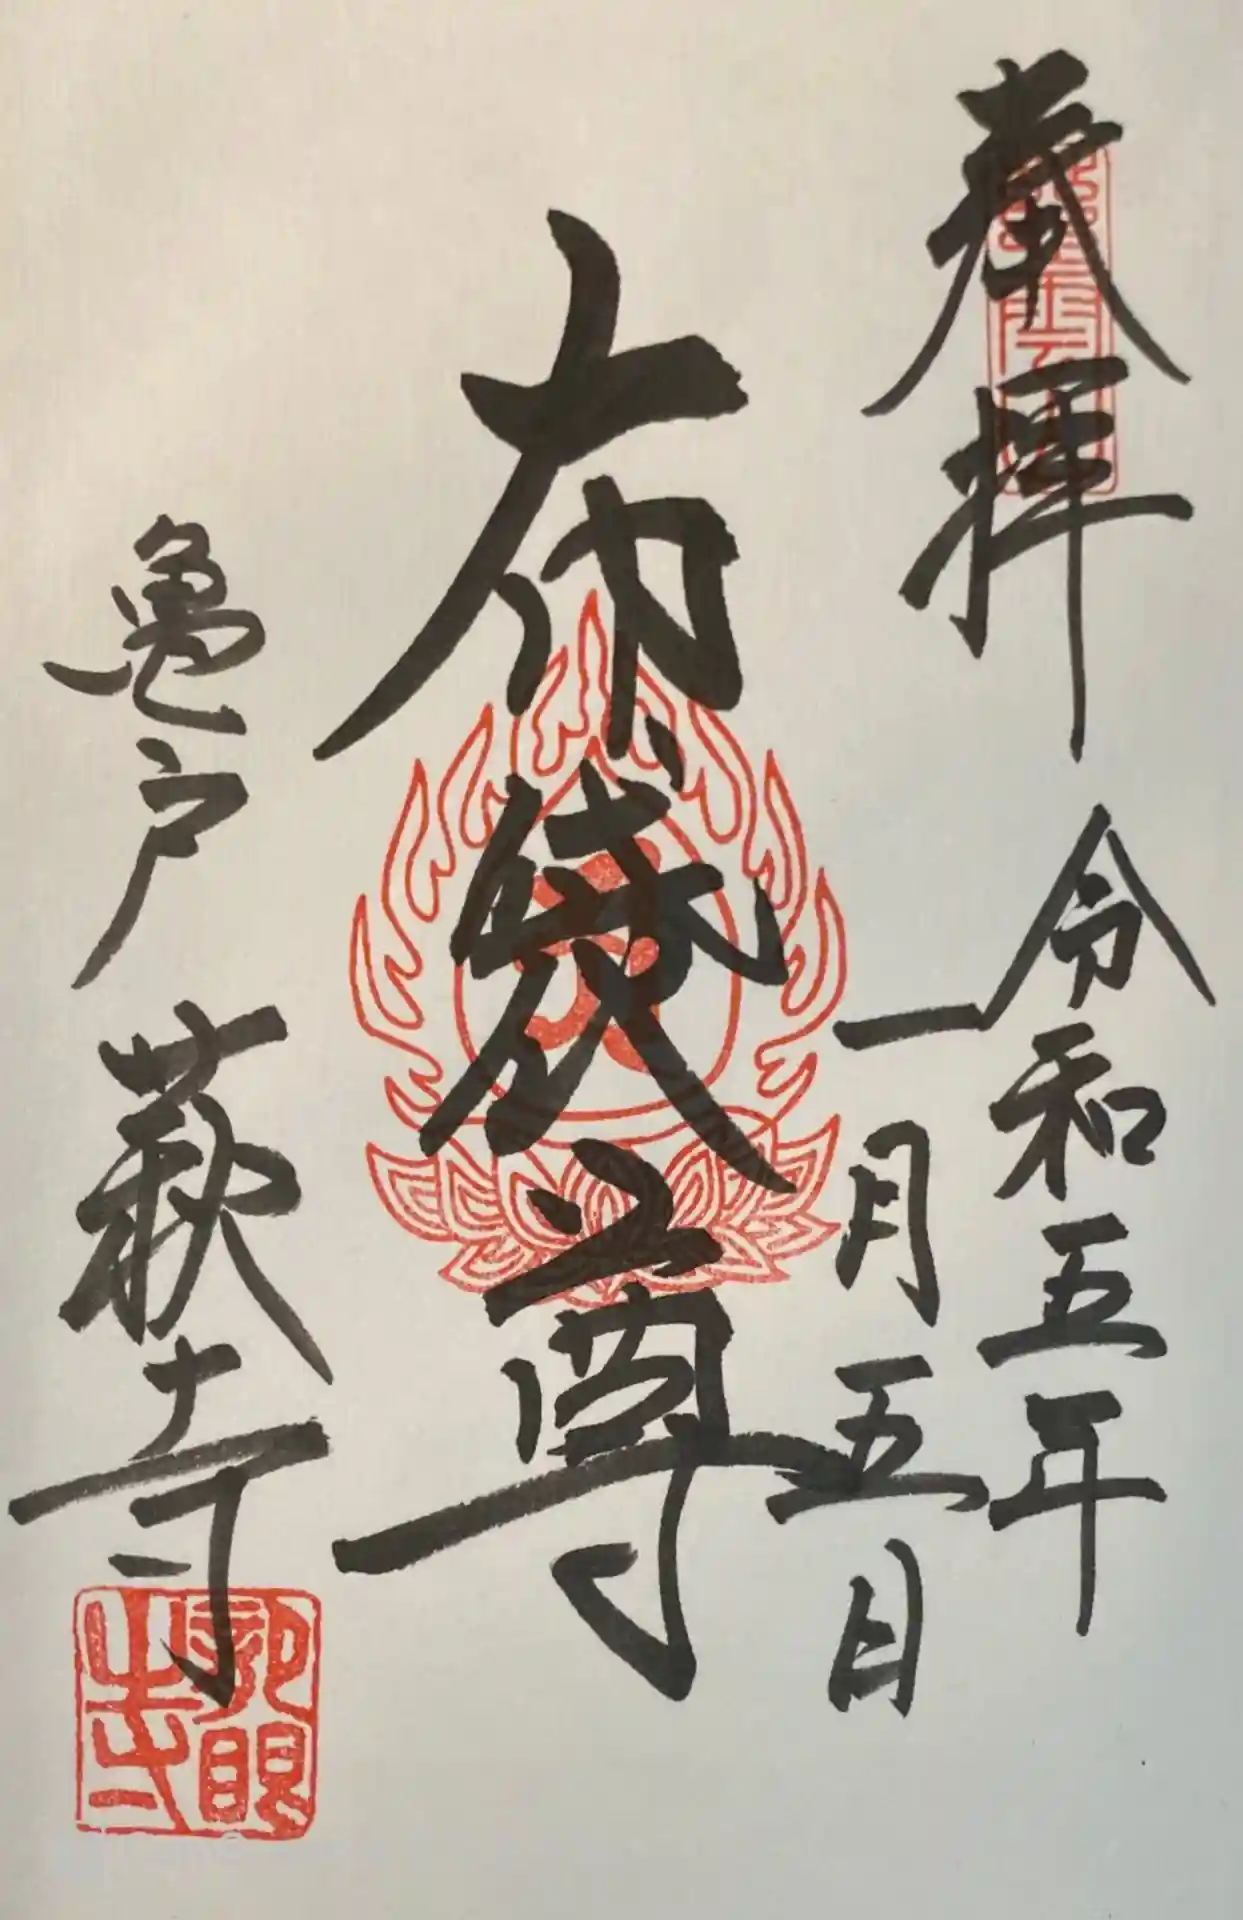 奉拝
令和五年
一月五日
布袋尊
亀戸 萩寺